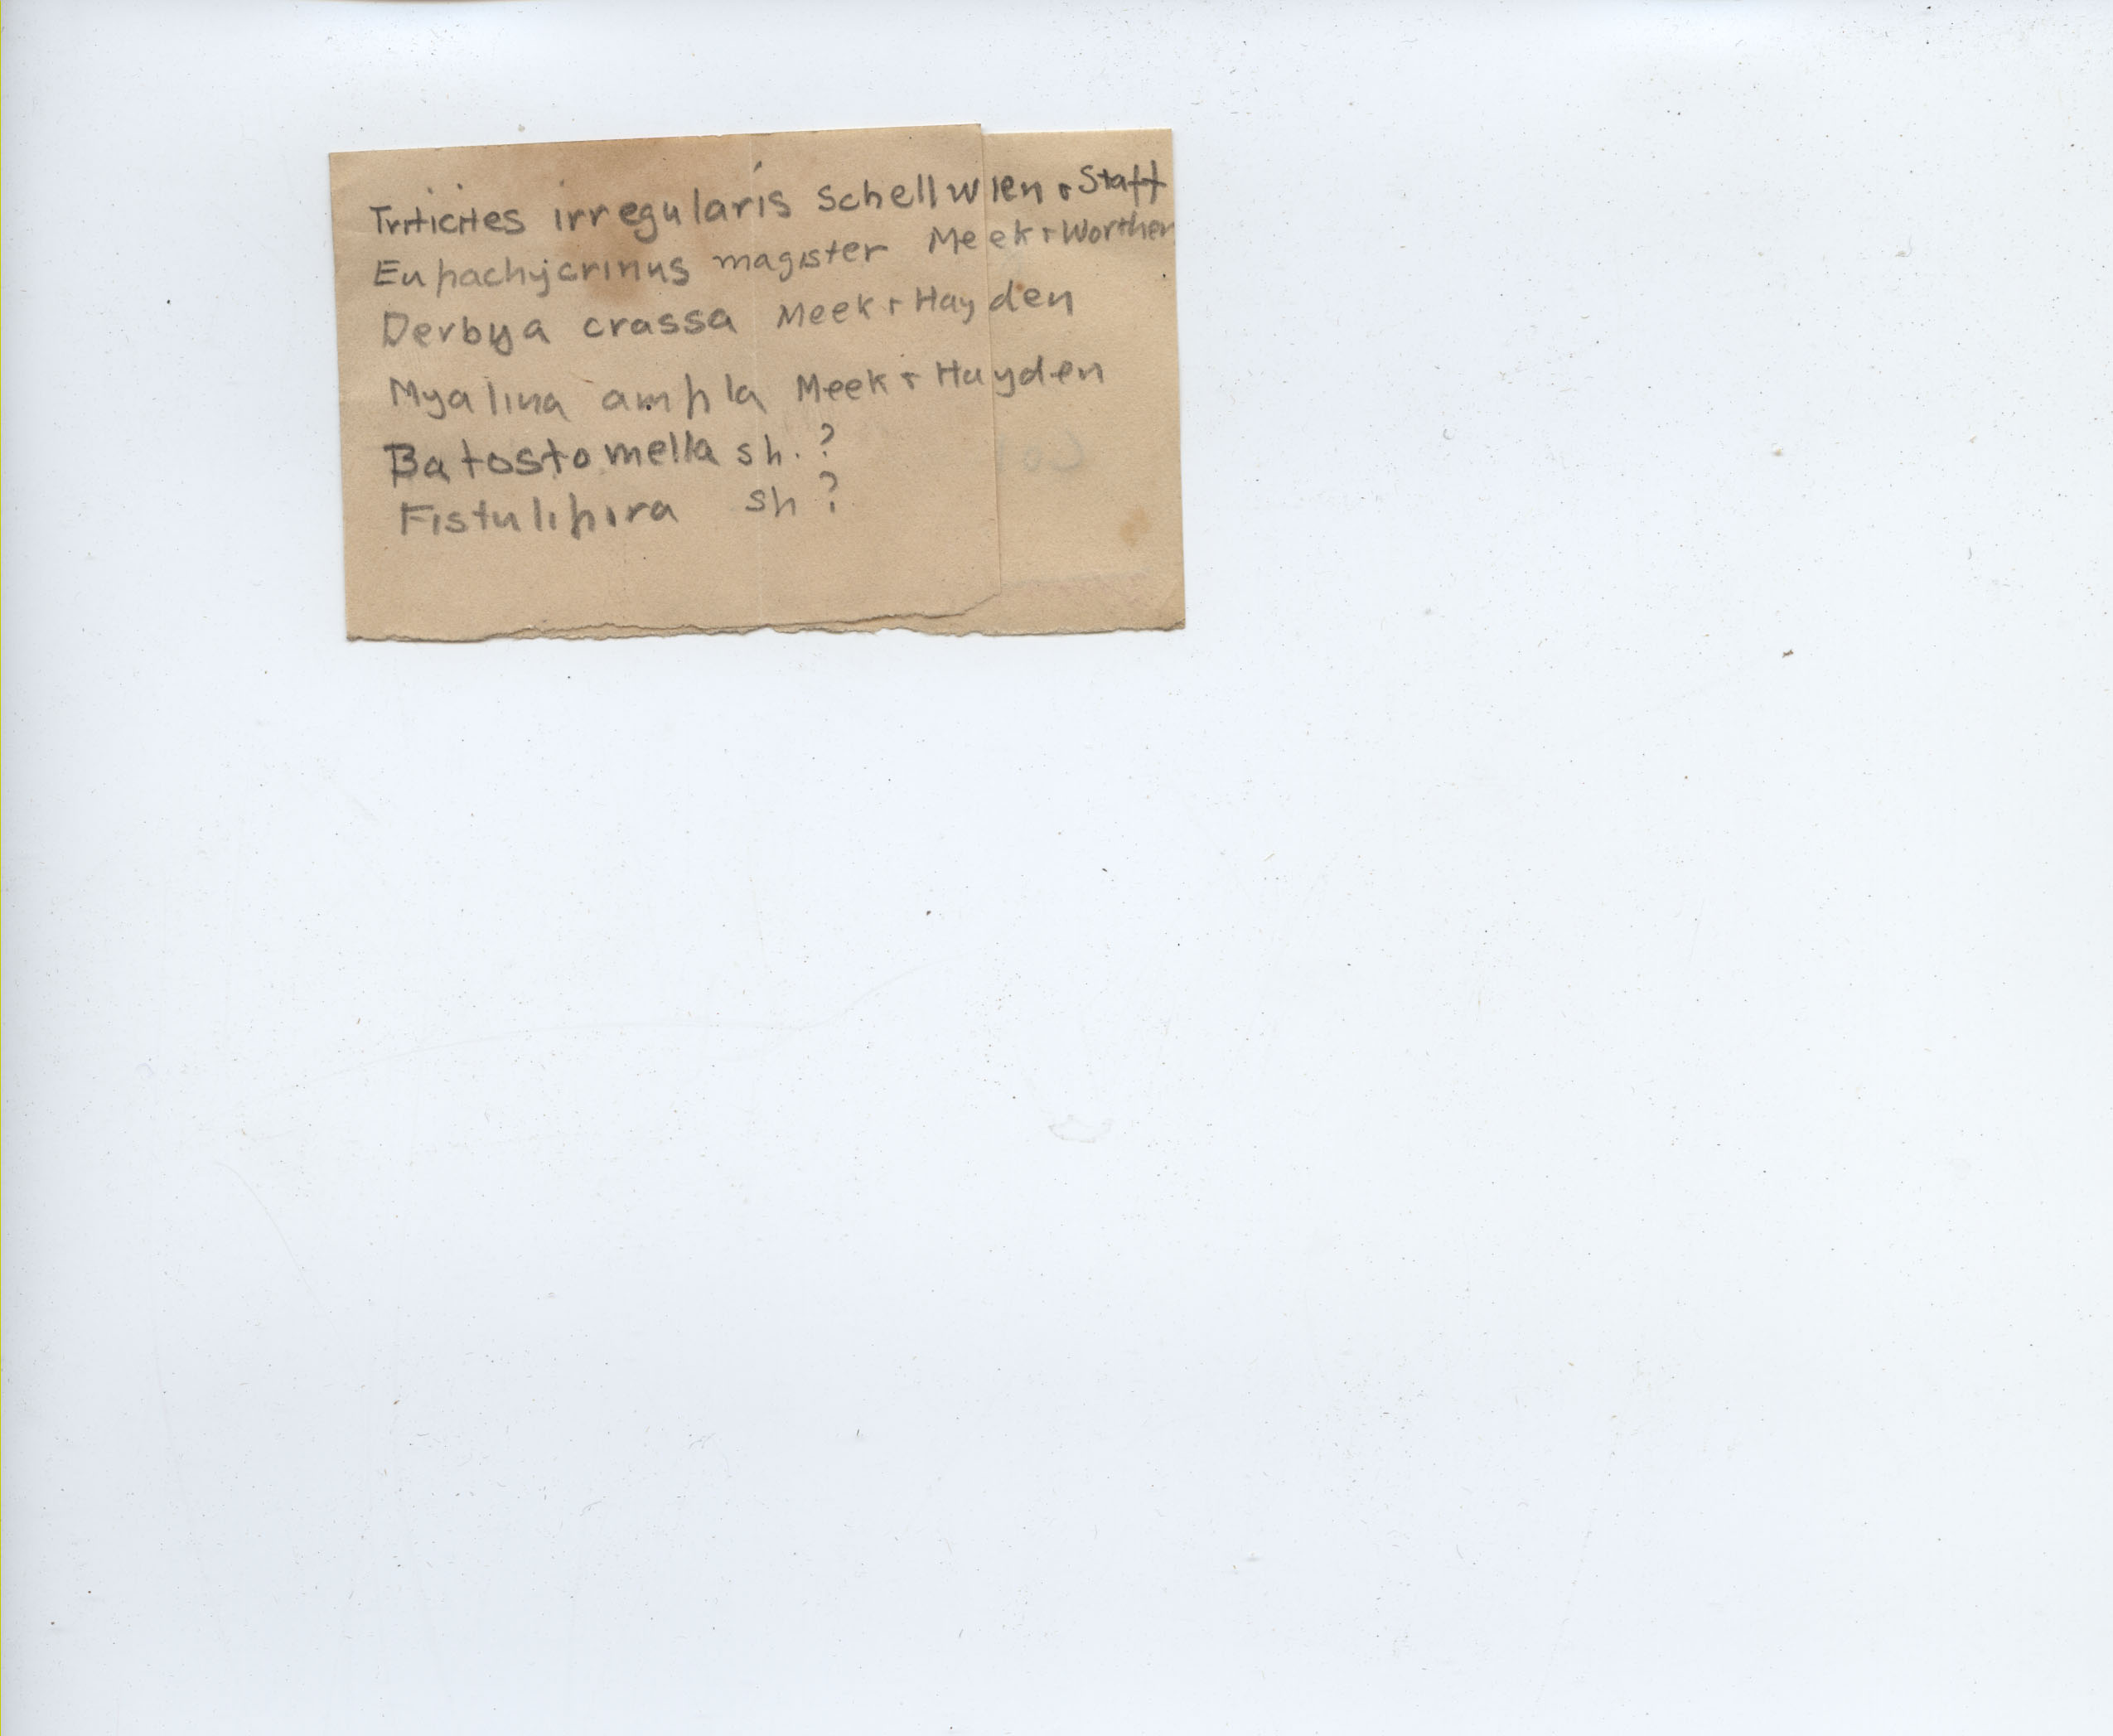 Triticites irregularis Schellwien + Staff
Eupachycrinus magister Meek + Worthen
Derbya crassa Meek + Hayden
Myalina ampla Meek + Hayden
Batostomella sp. ?
Fistulipira sp ?